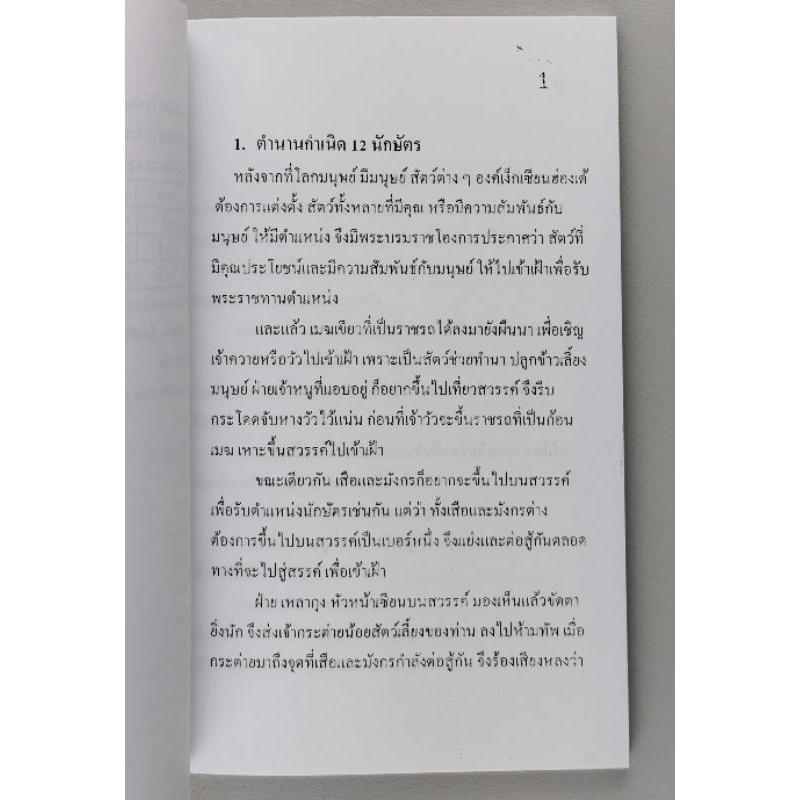 1
1. ตำนานกำเนิด 12 นักษัตร
หลังจากที่โลกมนุษย์ มีมนุษย์ สัตว์ต่าง ๆ องค์เง็กเซียนฮ่องเต้
ต้องการแต่งตั้ง สัตว์ทั้งหลายที่มีคุณ หรือมีความสัมพันธ์กับ
มนุษย์ ให้มีตำแหน่ง จึงมีพระบรมราชโองการประกาศว่า สัตว์ที่
มีคุณประโยชน์และมีความสัมพันธ์กับมนุษย์ ให้ไปเข้าเฝ้าเพื่อรับ
พระราชทานตำแหน่ง
และแล้ว เมฆเขียวที่เป็นราชรถได้ลงมายังผืนนา เพื่อเชิญ
เจ้าควายหรือวัวไปเข้าเฝ้า เพราะเป็นสัตว์ช่วยทำนา ปลูกข้าวเลี้ยง
มนุษย์ ฝ่ายเจ้าหนูที่แอบอยู่ ก็อยากขึ้นไปเที่ยวสวรรค์ จึงรีบ
กระโดดจับหางวัวไว้แน่น ก่อนที่เจ้าวัวจะขึ้นราชรถที่เป็นก้อน
เมฆ เหาะขึ้นสวรรค์ไปเข้าเฝ้า
ขณะเดียวกัน เสือและมังกรก็อยากจะขึ้นไปบนสวรรค์
เพื่อรับตำแหน่งนักษัตรเช่นกัน แต่ว่า ทั้งเสือและมังกรต่าง
ต้องการขึ้นไปบนสวรรค์เป็นเบอร์หนึ่ง จึงแย่งและต่อสู้กันตลอด
ทางที่จะไปสู่สรรค์ เพื่อเข้าเฝ้า
ฝ่าย เหลากุง หัวหน้าเซียนบนสวรรค์ มองเห็นแล้วขัดตา
ยิ่งนัก จึงส่งเจ้ากระต่ายน้อยสัตว์เลี้ยงของท่าน ลงไปห้ามทัพ เมื่อ
กระต่ายมาถึงจุดที่เสือและมังกรกำลังต่อสู้กัน จึงร้องเสียงหลงว่า